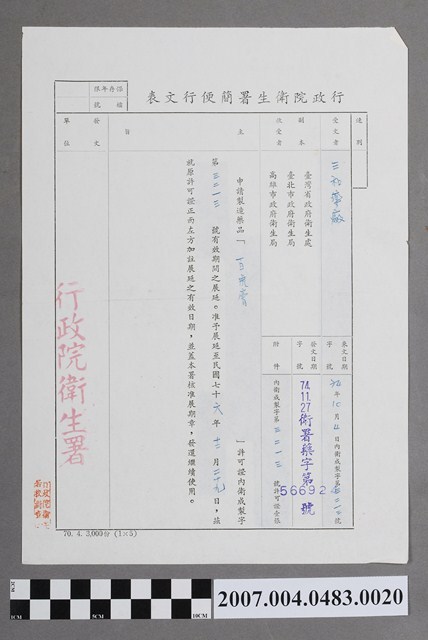 行政院衛生署簡便行文表
保存年限
檔號
速別
受文者
三
副本
收受者
臺灣省政府衛生處
臺北市政府衛生局
高雄市政府衛生局
來文日期
字號
年 月 日內衛成製字第 號
發文日期
字號
74.11.27 衛署藥字第
566924
號
附件
內衛成製字第三二一三號許可證壹張
主旨
申請製造藥品「 」許可證內衛成製字
第三二一三號有效期間之展延。准予展延至民國七十六年十二月二十九日,茲
就原許可證正面左方加註展延之有效日期,並蓋本署核准展期章,發還繼續使用。
發文
單位
行政院衛生署
70. 4. 3,000份 (1×5)
0CM
5CM
10CM
2007.004.0483.0020